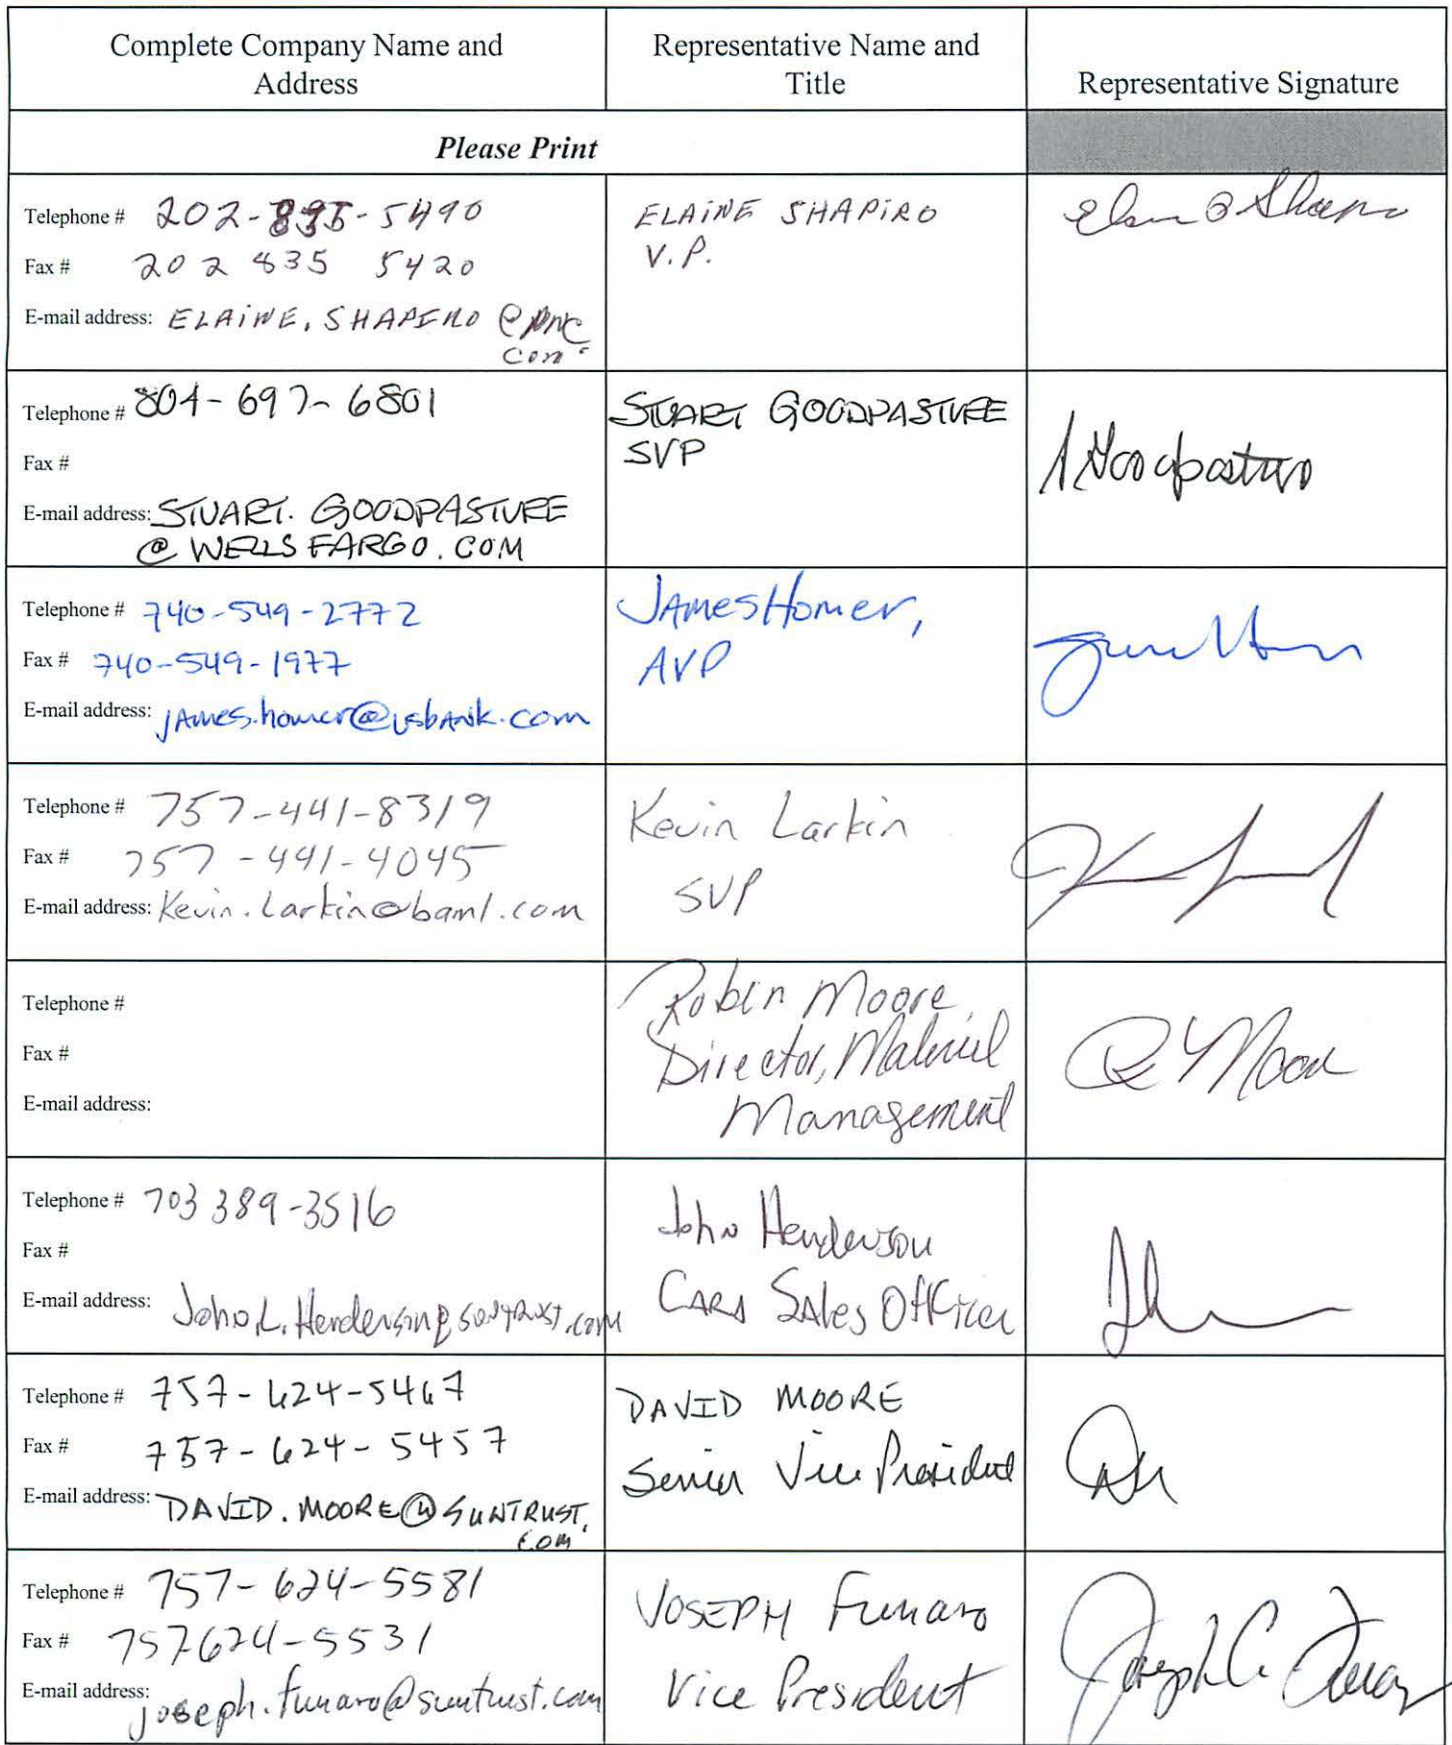 Complete Company Name and
Address
Representative Name and
Title
Representative Signature
Please Print
Telephone # 202-835-5490
Fax # 202 835 5420
E-mail address: ELAINE.SHAPIRO @pnc
com
ELAINE SHAPIRO
V.P.
Telephone # 804-697-6801
Fax #
E-mail address: STUART.GOODPASTURE
@WELLSFARGO.COM
STUART GOODPASTURE
SVP
Telephone # 740-549-2772
Fax # 740-549-1977
E-mail address: james.homer@usbank.com
James Homer,
AVP
Telephone # 757-441-8319
Fax # 757-441-4045
E-mail address: Kevin.Larkin@baml.com
Kevin Larkin
SVP
Telephone #
Fax #
E-mail address:
Robin Moore
Director, Material
Management
R Moore
Telephone # 703 389-3516
Fax #
E-mail address: John.L.Henderson@suntrust.com
John Henderson
Card Sales Officer
Telephone # 757-624-5467
Fax # 757-624-5457
E-mail address: DAVID.MOORE@SUNTRUST.
COM
DAVID MOORE
Senior Vice President
Telephone # 757-624-5581
Fax # 757624-5531
E-mail address: joseph.funaro@suntrust.com
JOSEPH Funaro
Vice President
Joseph C. Funaro